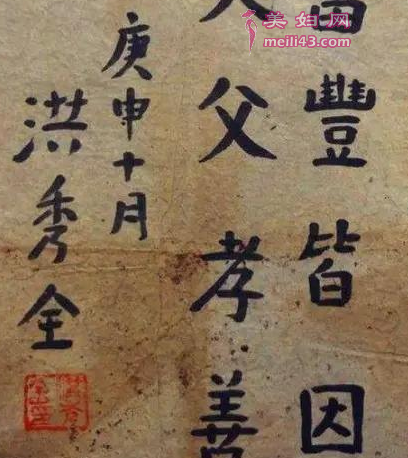 豐皆因
父孝善
庚申十月
洪秀全
美妇网
meili43.com